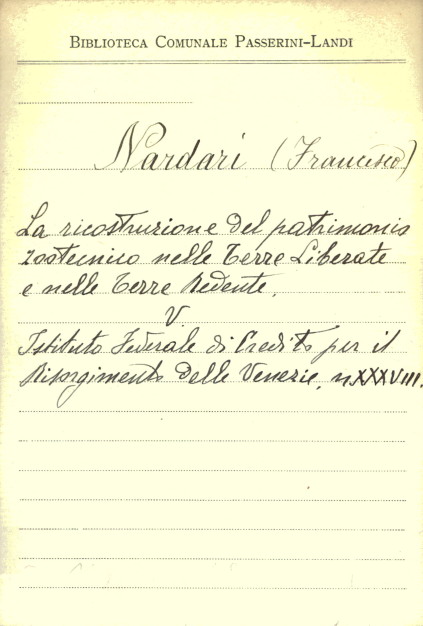 BIBLIOTECA COMUNALE PASSERINI-LANDI
Nardari (Francesco)
La ricostruzione del patrimonio
zootecnico nelle Terre Liberate
e nelle Terre Redente.
V
Istituto Federale di Credito per il
Risorgimento delle Venezie, n. XXXVIII.